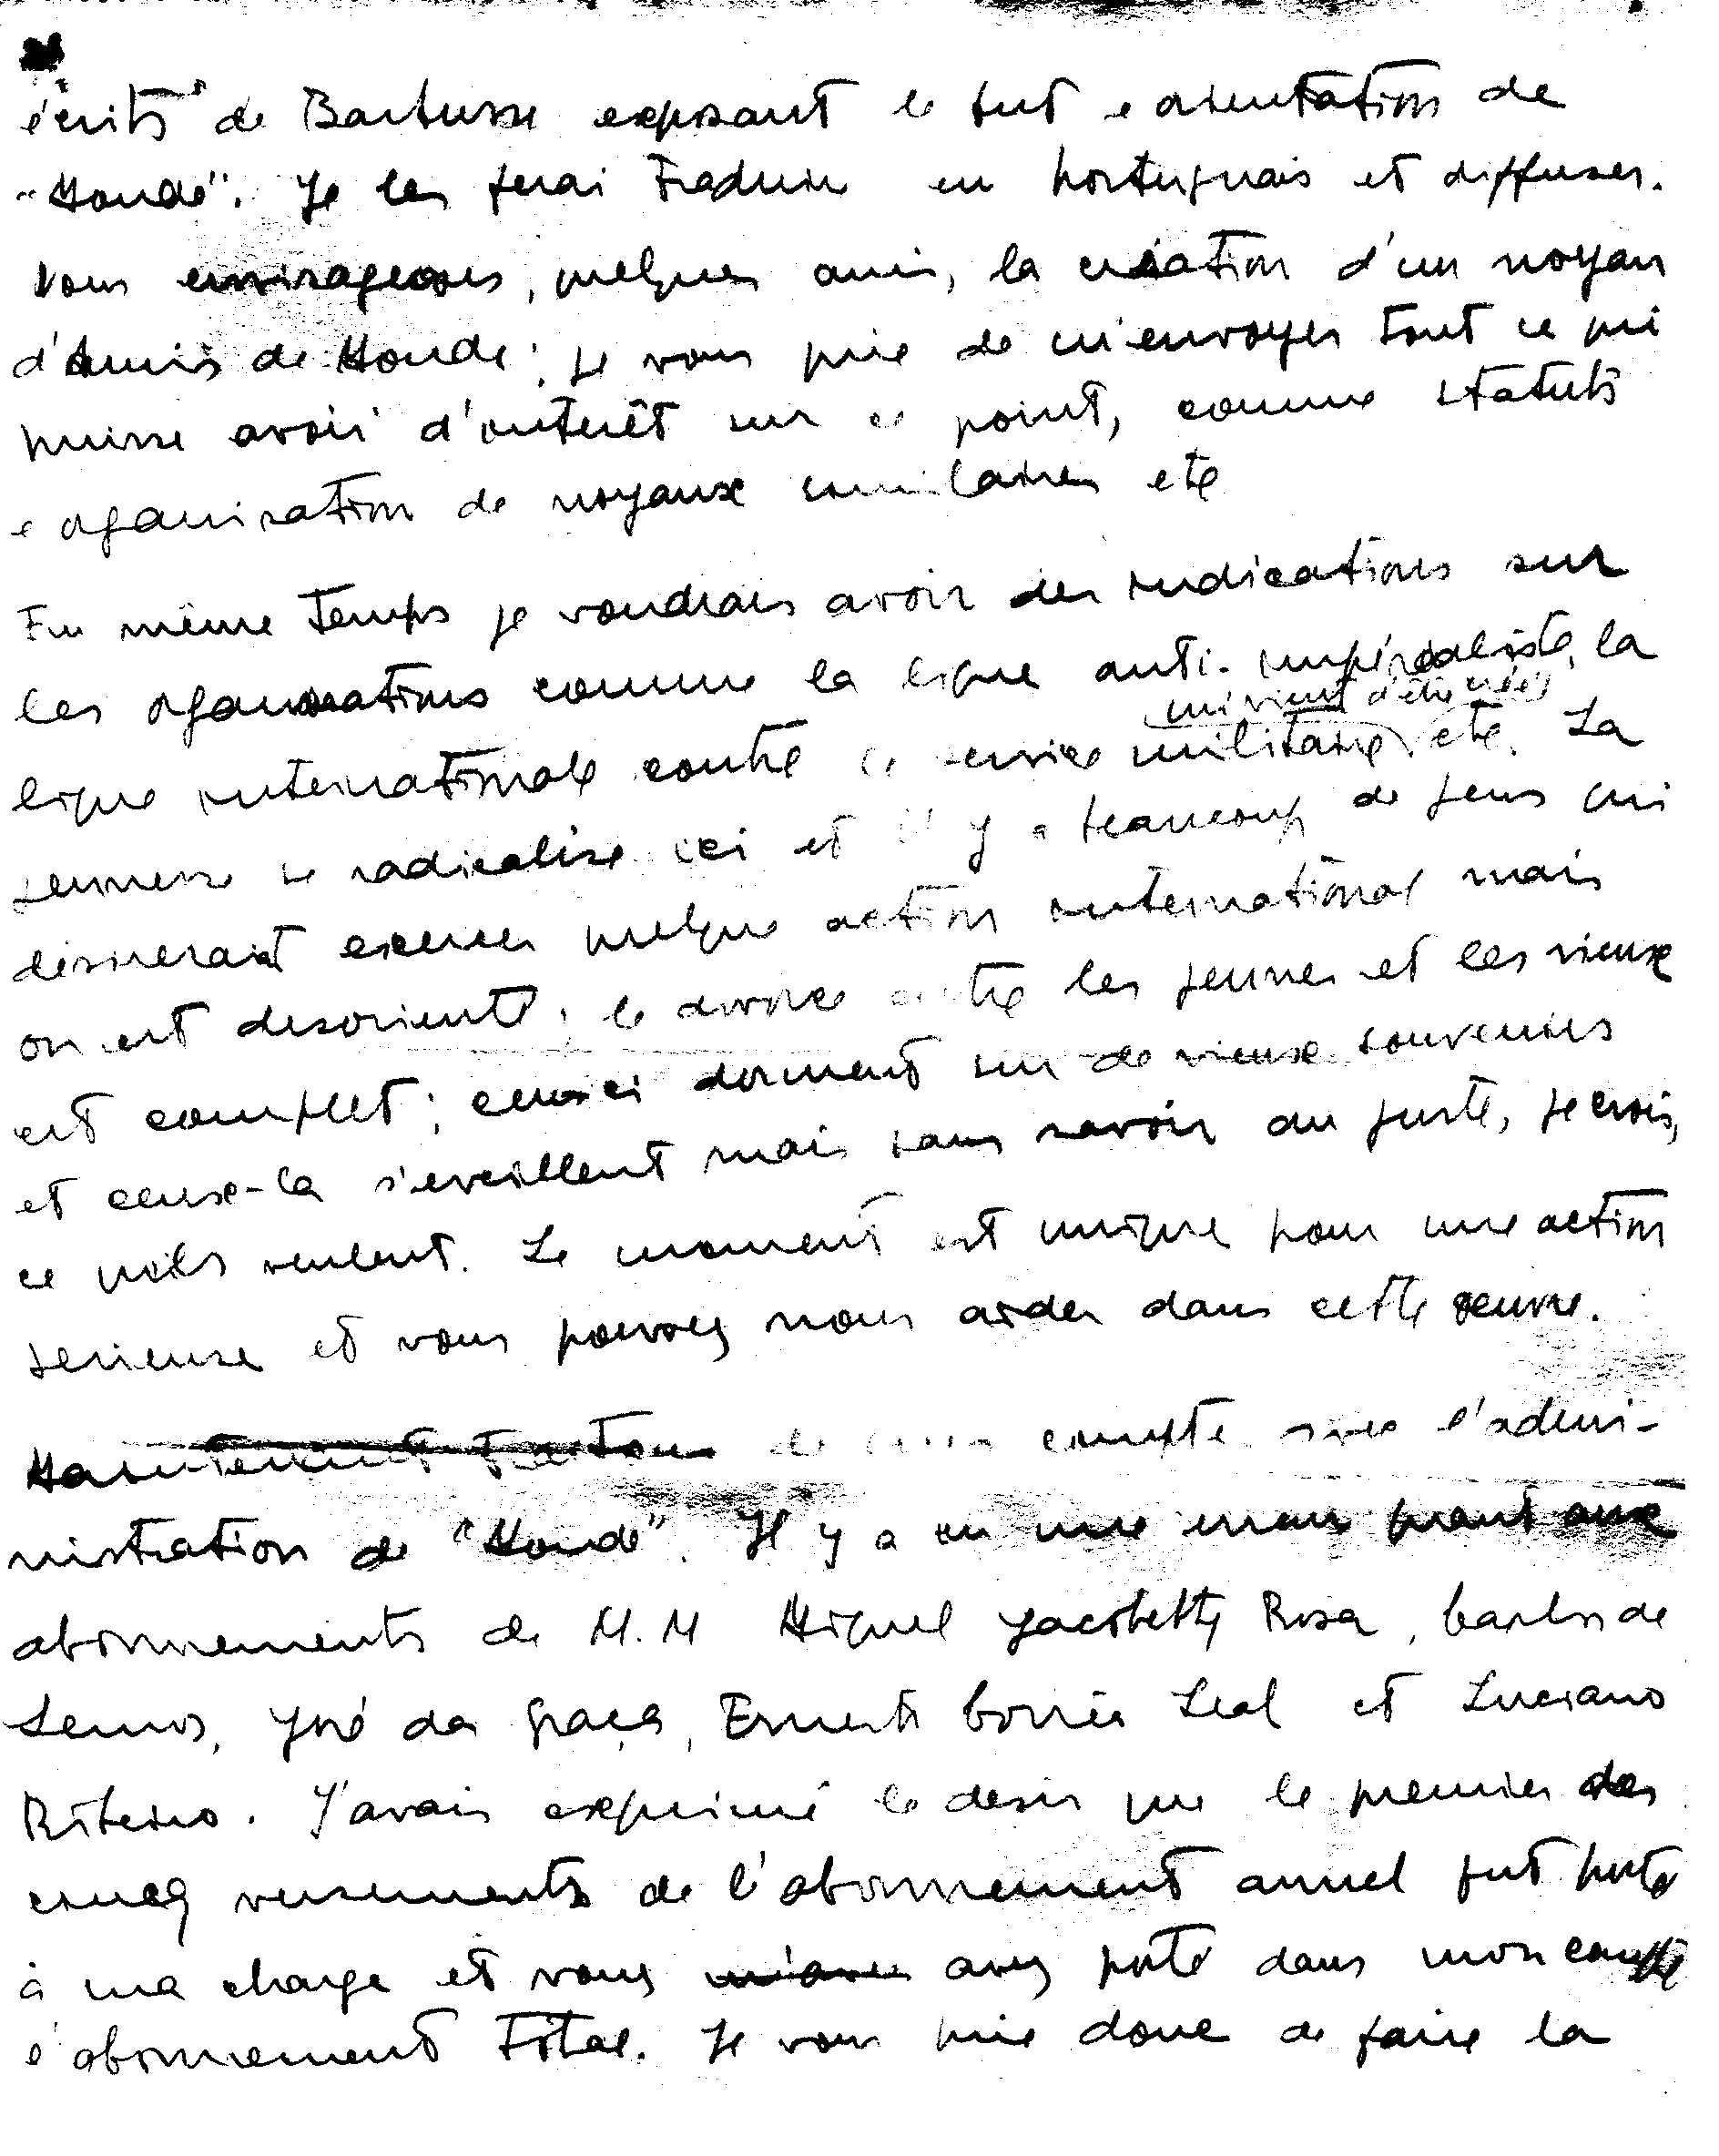 écrits de Barbusse exposant le but e orientation de
"Monde". Je les ferai traduire en portugais et diffuser.
Nous envisageons, quelques amis, la création d'un noyau
d'Amis de Monde; je vous prie de m'envoyer tout ce qui
puisse avoir d'intérêt sur ce point, comme statuts
e organisation de noyaux similaires etc
En même temps je voudrais avoir des indications sur
les organisations comme la ligue anti-impérialiste, la
qui vient d'être créée
ligue internationale contre le service militaire etc. La
jeunesse se radicalise ici et il y a beaucoup de gens qui
desireraint exercer quelque action international mais
on est desorienté; le divorce entre les jeunes et les vieux
est complet; ceux ci dorment sur de vieux souvenirs
et ceux-la s'eveillent mais sans savoir au juste, je crois,
ce qu'ils veulent. Le moment est unique pour une action
serieuse et vous pouvez nous aider dans cette oeuvre.
Maintenant traitons de mon compte avec l'admi-
nistration de "Monde". Il y a eu une erreur quant aux
abonnements de M.M Miguel Jacobetty Rosa, Carlos de
Lemos, José da Graça, Ernesto Corrêa Leal et Luciano
Ribeiro. J'avais exprimé le desir que le premier des
cinq versements de l'abonnement annuel fut porté
à ma charge et vous m'avez avez porté dans mon compte
l'abonnement total. Je vous prie donc de faire la